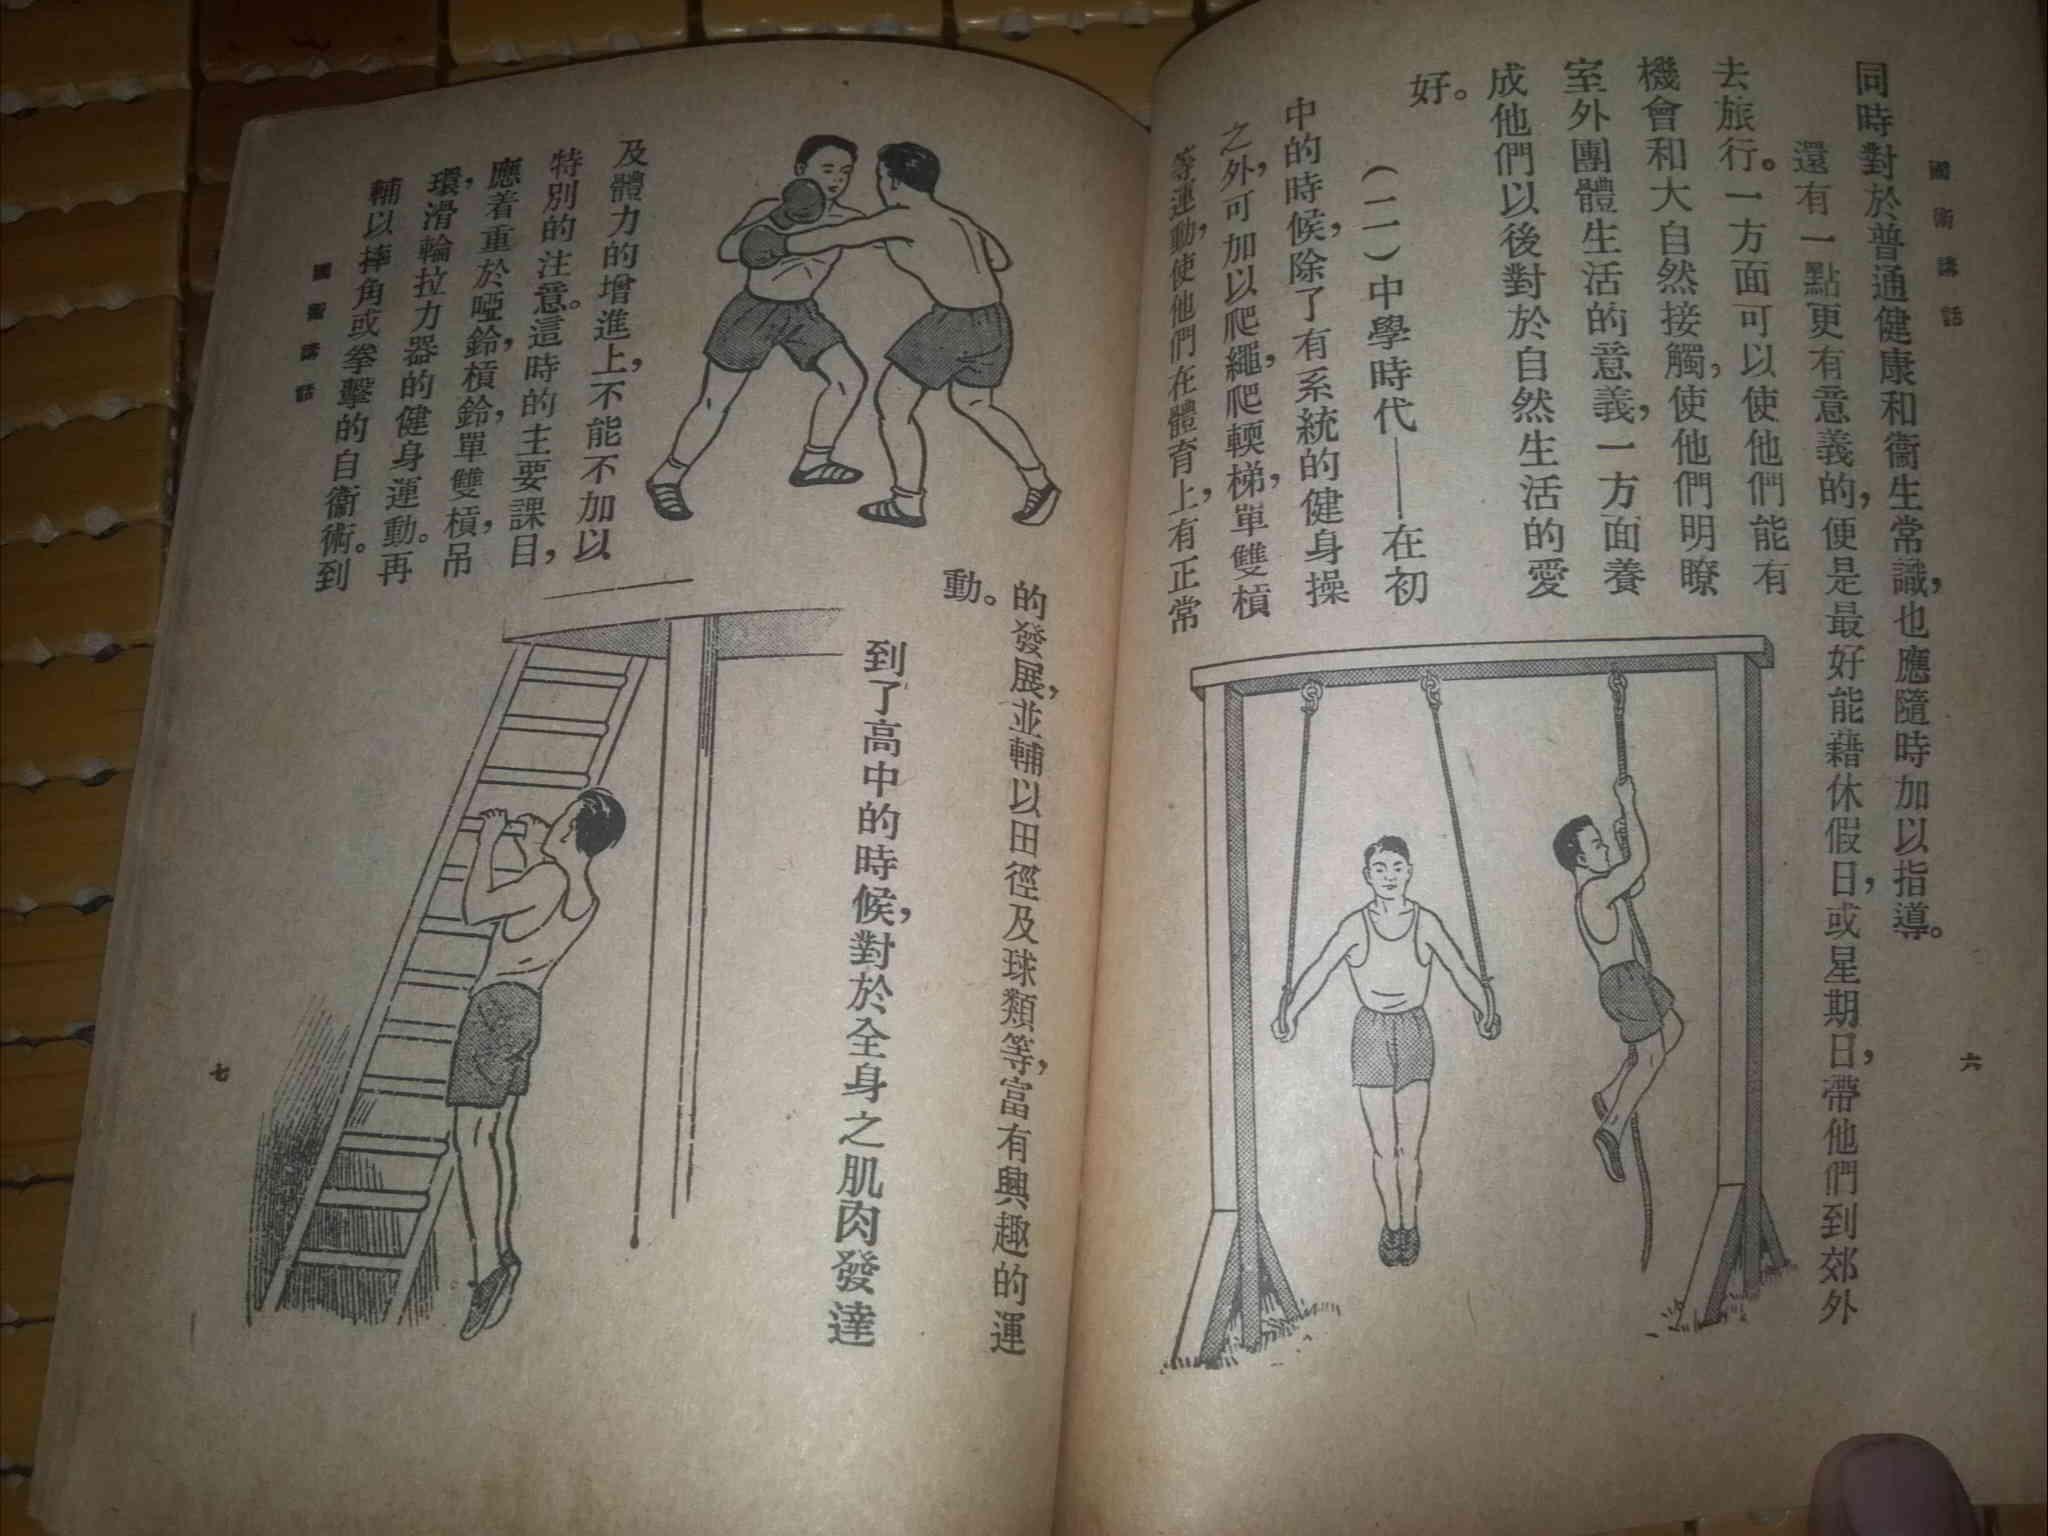 國術講話
六
同時對於普通健康和衞生常識，也應隨時加以指導。
還有一點更有意義的，便是最好能藉休假日，或星期日，帶他們到郊外
去旅行。一方面可以使他們能有
機會和大自然接觸，使他們明瞭
室外團體生活的意義，一方面養
成他們以後對於自然生活的愛
好。
（二）中學時代——在初
中的時候，除了有系統的健身操
之外，可加以爬繩，爬輭梯，單雙槓
等運動，使他們在體育上，有正常
的發展，並輔以田徑及球類等，富有興趣的運
動。
到了高中的時候，對於全身之肌肉發達
及體力的增進上，不能不加以
特別的注意。這時的主要課目，
應着重於啞鈴，槓鈴，單雙槓，吊
環，滑輪拉力器的健身運動。再
輔以摔角或拳擊的自衞術。到
國術講話
七